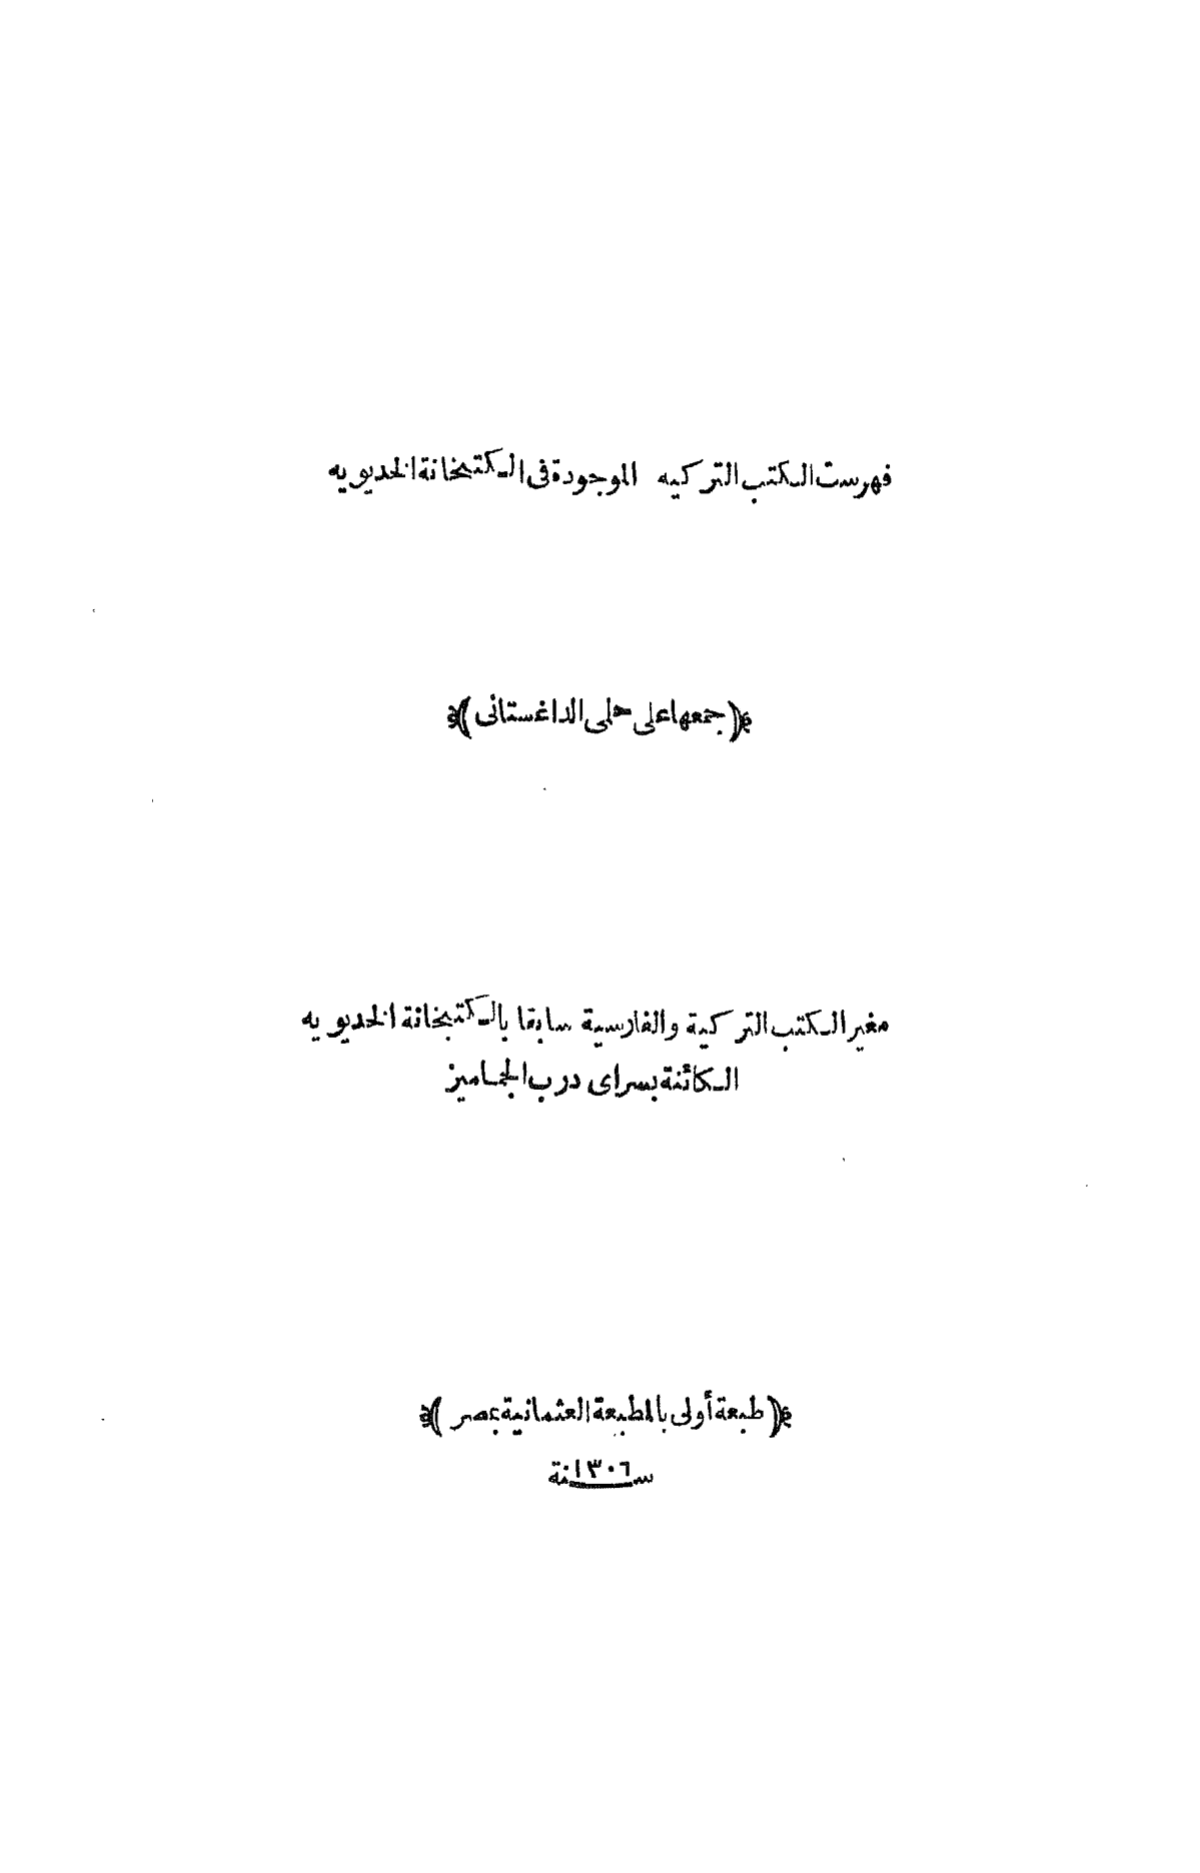 فهرست الكتب التركيه الموجودة فى الكتبخانة الخديويه
﴿جمعها على حلمى الداغستانى﴾
مغير الكتب التركية والفارسية سابقا بالكتبخانة الخديويه
الكائنة بسراى درب الجماميز
﴿طبعة أولى بالمطبعة العثمانية بمصر﴾
سنة ١٣٠٦